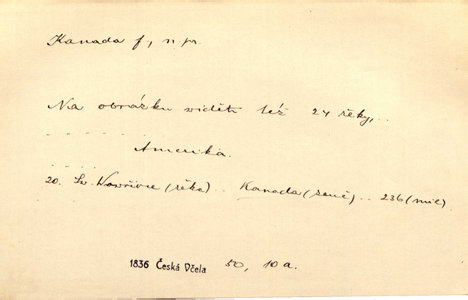 Kanada f., n. pr.
Na obrázku viděti též 24 řeky, ..
. . . . . .
Amerika.
. . . . .
20. Sv. Vavřince (řeka) .. Kanada (země) .. 236 (mil)
1836 Česká Včela 50, 10a.